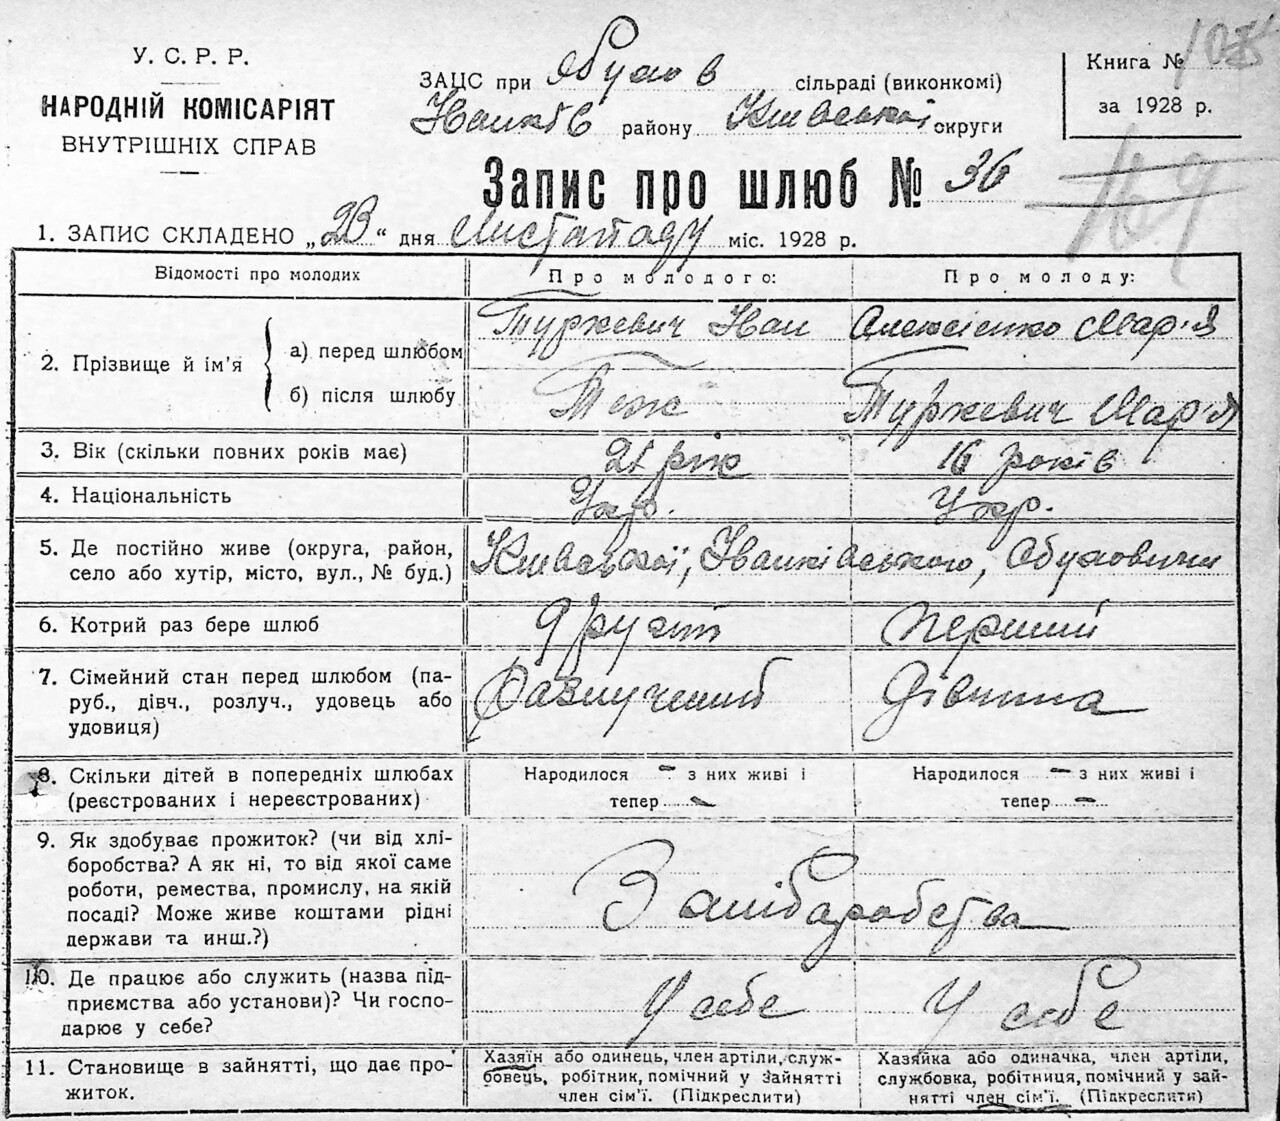 У. С. Р. Р.
НАРОДНІЙ КОМІСАРІЯТ
ВНУТРІШНІХ СПРАВ
ЗАЦС при сільраді (виконкомі)
району округи
Книга №
за 1928 р.
Запис про шлюб № 36
1. ЗАПИС СКЛАДЕНО „23“ дня Листападу міс. 1928 р.
Відомості про молодих
Про молодого:
Про молоду:
2. Прізвище й ім'я
а) перед шлюбом
Туржевич Іван
Алексієнко Мар'я
б) після шлюбу
Теж
Туржевич Мар'я
3. Вік (скільки повних років має)
21 рік
16 років
4. Національність
Укр.
Укр.
5. Де постійно живе (округа, район,
село або хутір, місто, вул., № буд.)
Київської, Іванківського, Обуховичи
6. Котрий раз бере шлюб
другий
перший
7. Сімейний стан перед шлюбом (па-
руб., дівч., розлуч., удовець або
удовиця)
Разлучений
дівчина
8. Скільки дітей в попередніх шлюбах
(реєстрованих і нереєстрованих)
Народилося – з них живі і
тепер –
Народилося – з них живі і
тепер –
9. Як здобуває прожиток? (чи від хлі-
боробства? А як ні, то від якої саме
роботи, ремества, промислу, на якій
посаді? Може живе коштами рідні
держави та инш.?)
З хліборобства
10. Де працює або служить (назва під-
приємства або установи)? Чи госпо-
дарює у себе?
У себе
У себе
11. Становище в зайнятті, що дає про-
житок.
Хазяїн або одинець, член артілі, служ-
бовець, робітник, помічний у зайнятті
член сім'ї. (Підкреслити)
Хазяйка або одиначка, член артілі,
службовка, робітниця, помічний у зай-
нятті член сім'ї. (Підкреслити)